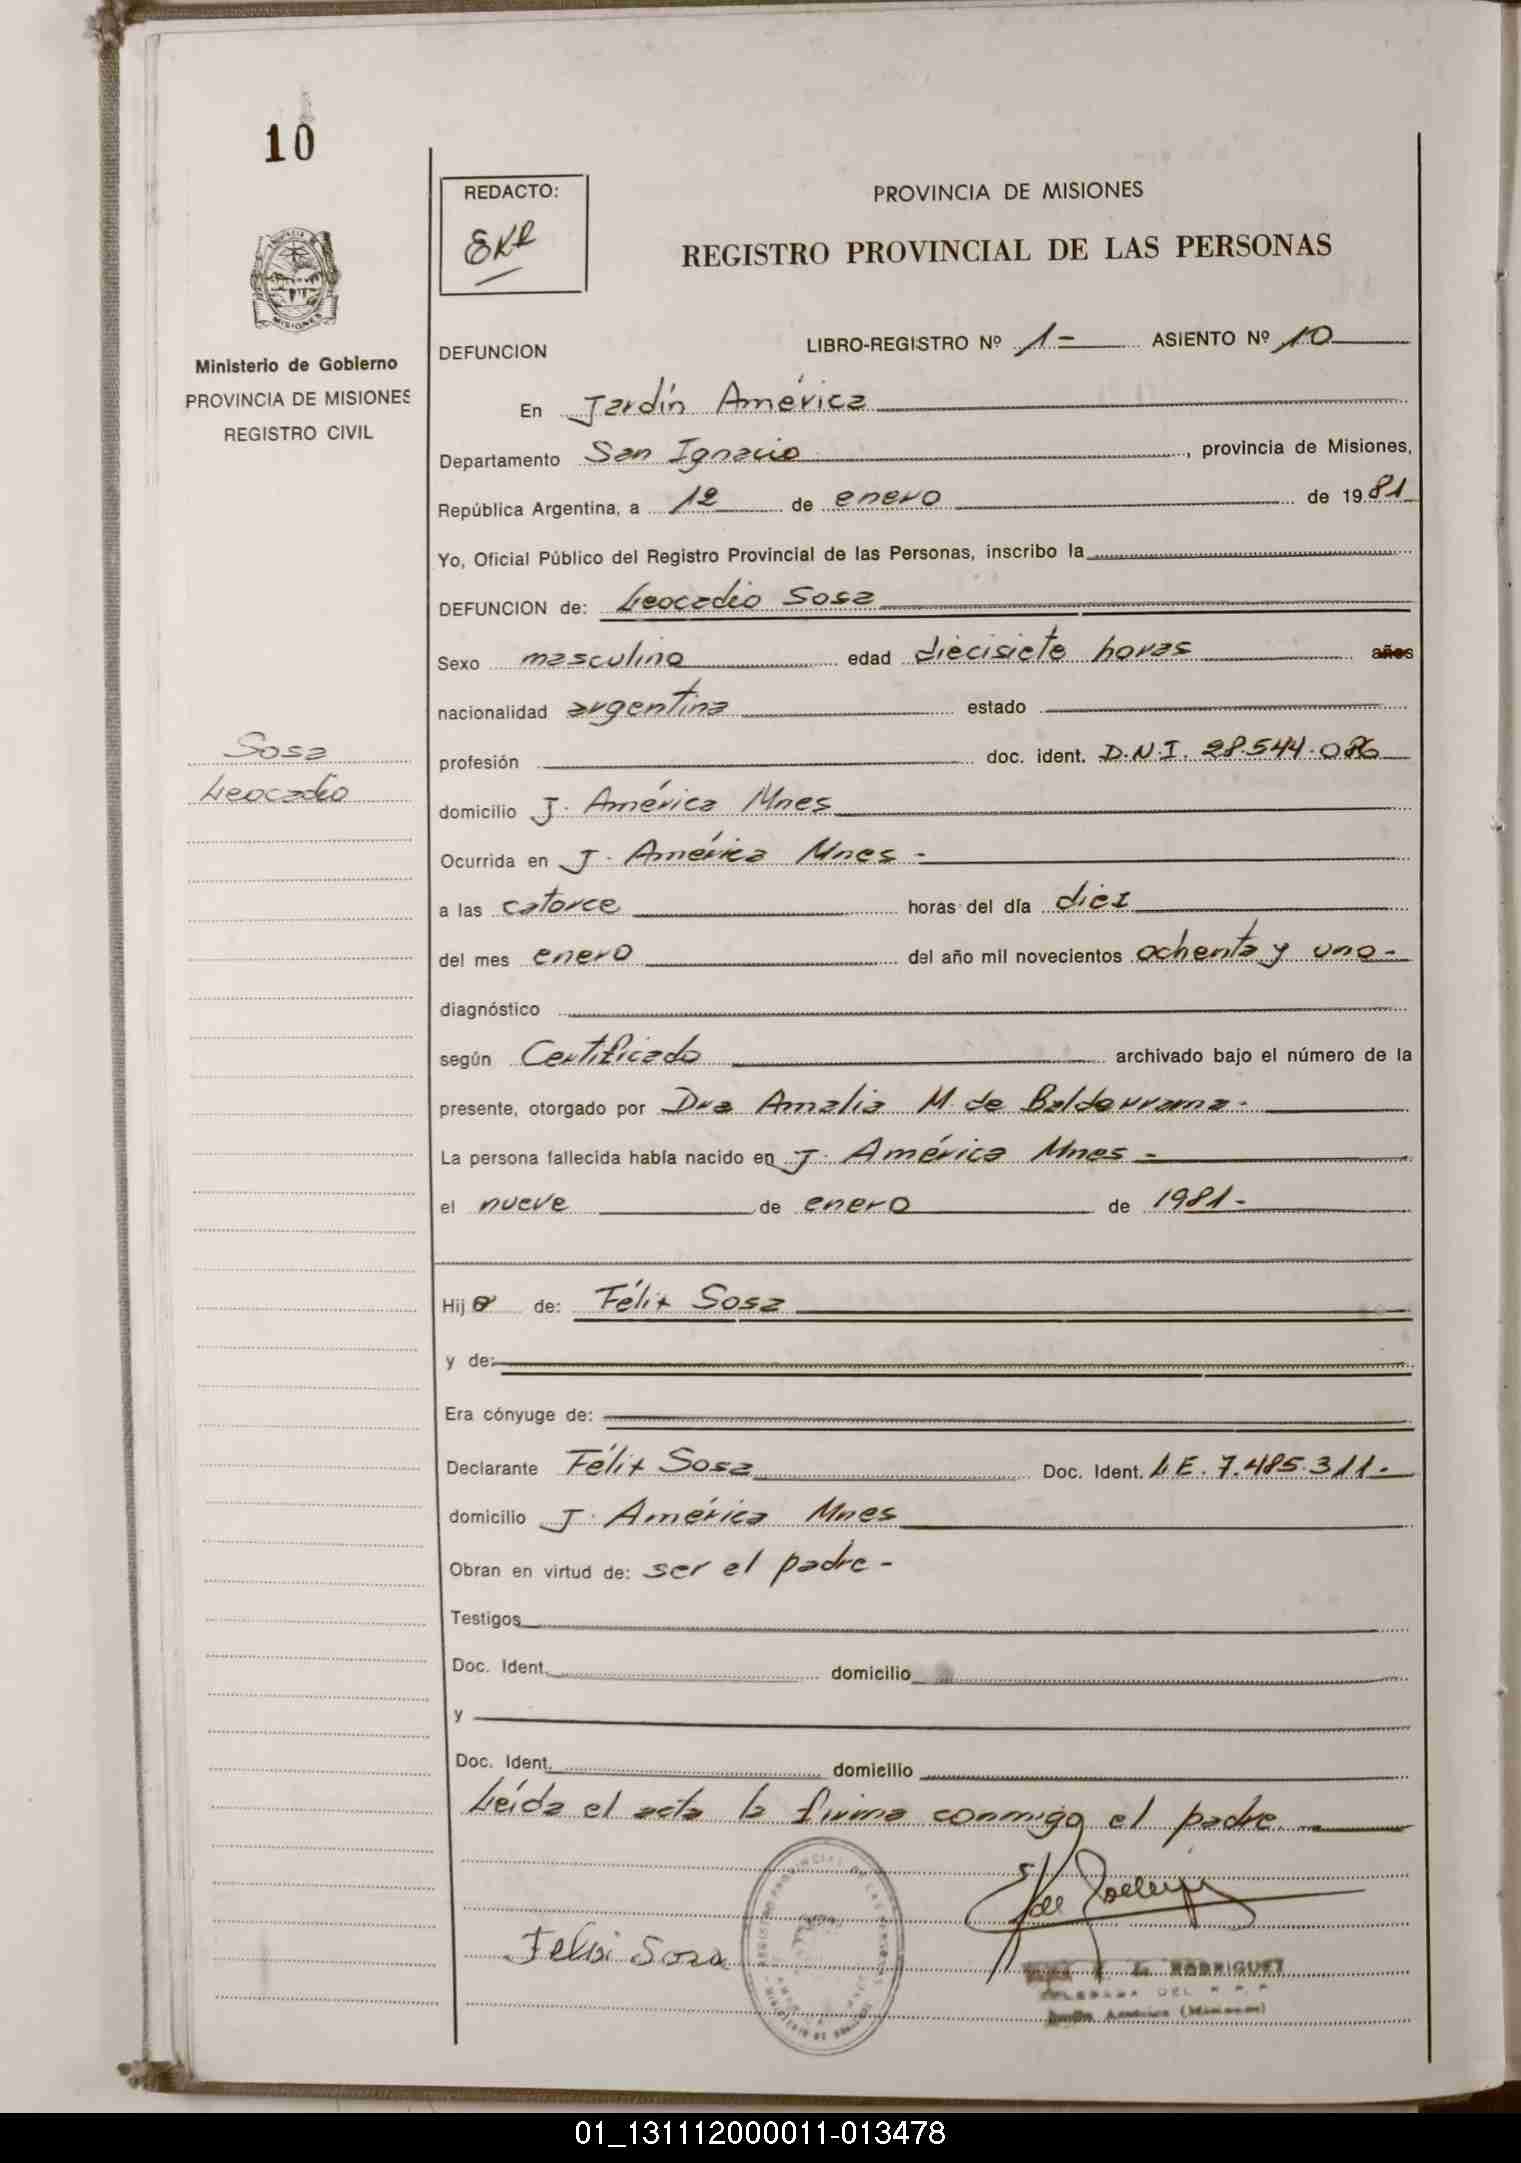 10
MISIONES
Ministerio de Gobierno
PROVINCIA DE MISIONES
REGISTRO CIVIL
Sosa
Leocadio
REDACTO:
EKR
PROVINCIA DE MISIONES
REGISTRO PROVINCIAL DE LAS PERSONAS
DEFUNCION LIBRO-REGISTRO Nº 1- ASIENTO Nº 10
En Jardín América
Departamento San Ignacio, provincia de Misiones,
República Argentina, a 12 de enero de 1981
Yo, Oficial Público del Registro Provincial de las Personas, inscribo la
DEFUNCION de: Leocadio Sosa
Sexo masculino edad diecisiete horas años
nacionalidad argentina estado
profesión doc. ident. D.N.I. 28.544.086
domicilio J. América Mnes
Ocurrida en J. América Mnes -
a las catorce horas del día diez
del mes enero del año mil novecientos ochenta y uno-
diagnóstico
según Certificado archivado bajo el número de la
presente, otorgado por Dra Amalia M. de Balderrama-
La persona fallecida había nacido en J. América Mnes -
el nueve de enero de 1981-
Hijo de: Félix Sosa
y de:
Era cónyuge de:
Declarante Félix Sosa Doc. Ident. L.E. 7.485.311-
domicilio J. América Mnes
Obran en virtud de: ser el padre -
Testigos
Doc. Ident. domicilio
y
Doc. Ident. domicilio
Leída el acta la firma conmigo el padre.
Felxi Sosa
RODRIGUEZ
Jardín América (Misiones)
01_131112000011-013478